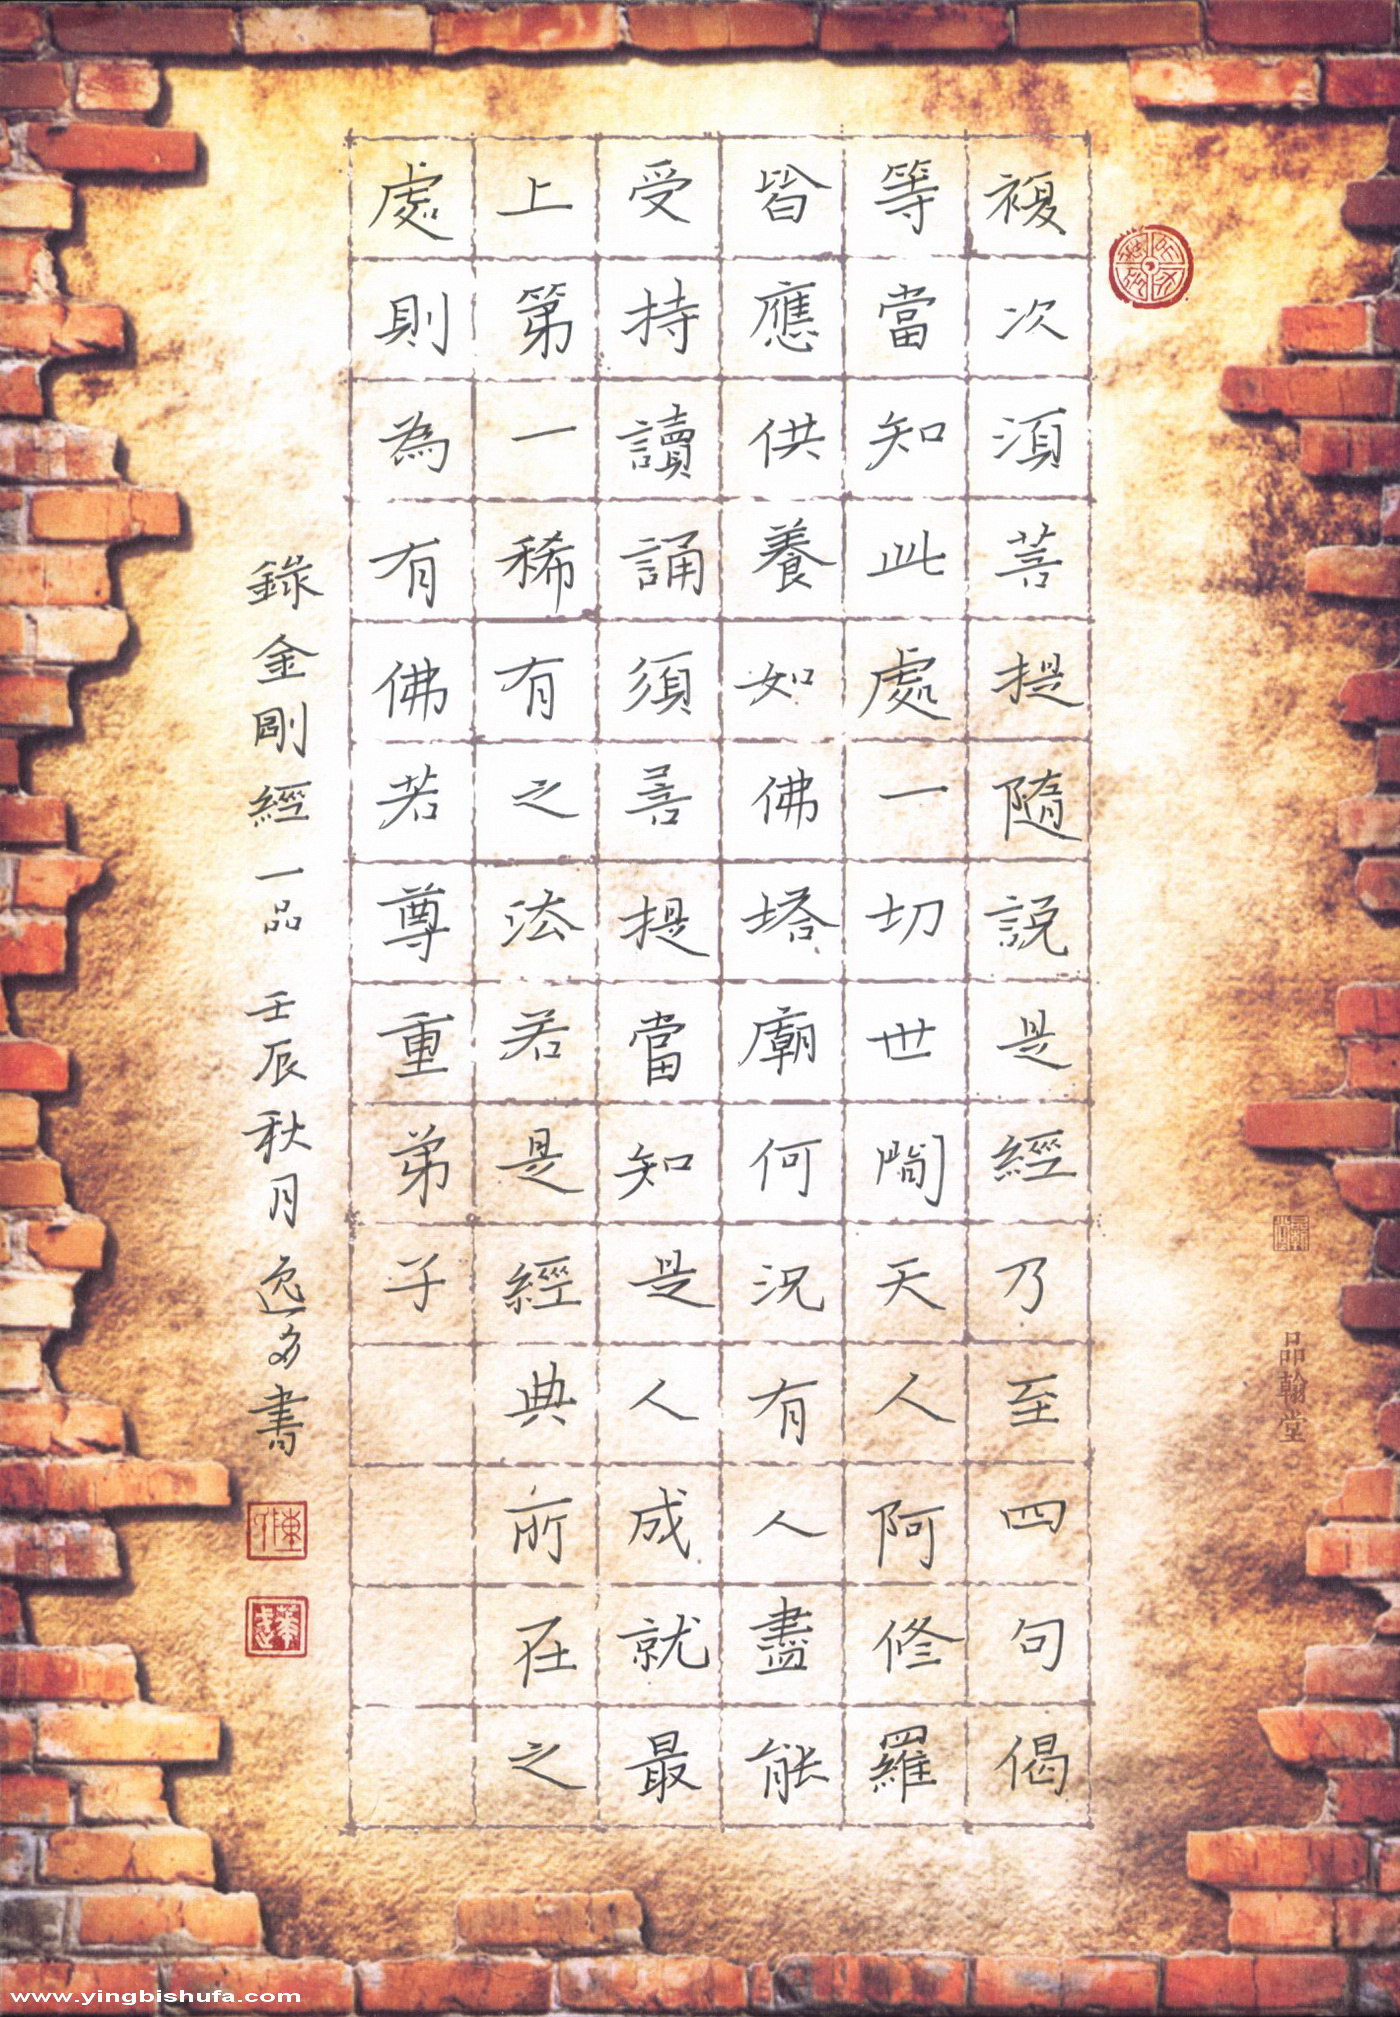 複次湏菩提隨說是經乃至四句偈
等當知此處一切世間天人阿修羅
皆應供養如佛塔廟何況有人盡能
受持讀誦須菩提當知是人成就最
上第一稀有之法若是經典所在之
處則為有佛若尊重弟子
錄金剛經一品 壬辰秋月逸多書
品翰堂
www.yingbishufa.com